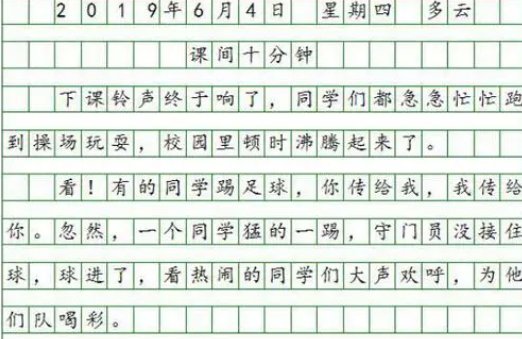 2019年6月4日 星期四 多云
课间十分钟
下课铃声终于响了，同学们都急急忙忙跑
到操场玩耍，校园里顿时沸腾起来了。
看！有的同学踢足球，你传给我，我传给
你。忽然，一个同学猛的一踢，守门员没接住
球，球进了，看热闹的同学们大声欢呼，为他
们队喝彩。